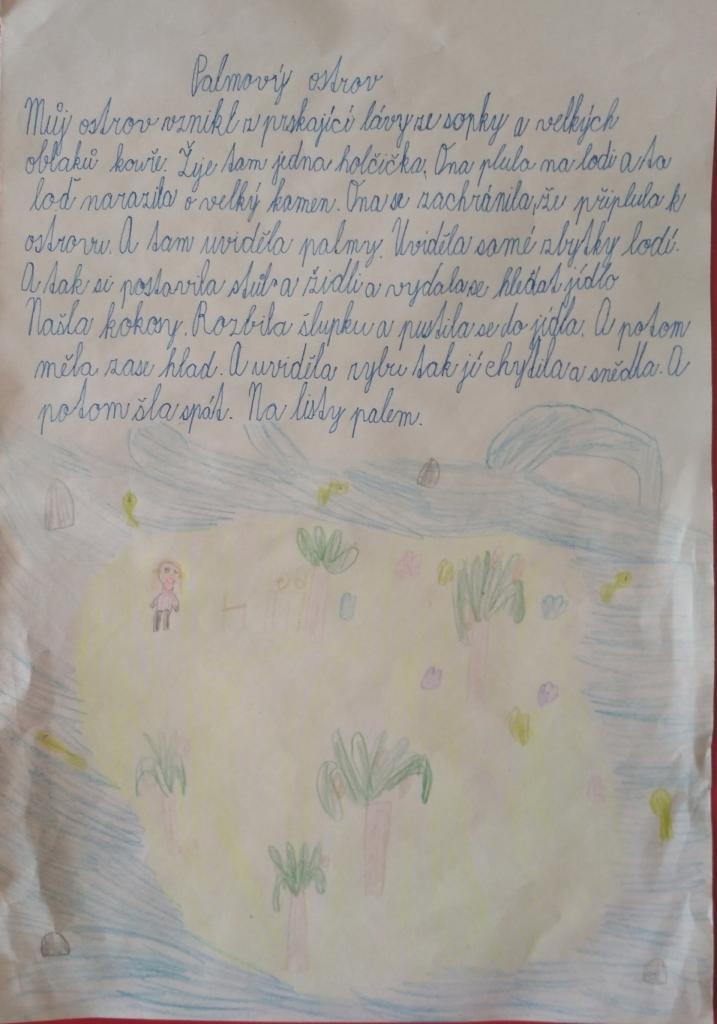 Palmový ostrov
Můj ostrov vznikl z prskající lávy ze sopky a velkých
oblaků kouře. Žije tam jedna holčička. Ona plula na lodi a ta
loď narazila o velký kámen. Ona se zachránila, že připlula k
ostrovu. A tam uviděla palmy. Uviděla samé zbytky lodí.
A tak si postavila stůl a židli a vydala se hledat jídlo
Našla kokosy. Rozbila šlupku a pustila se do jídla. A potom
měla zase hlad. A uviděla rybu tak jí chytila a snědla. A
potom šla spát. Na listy palem.